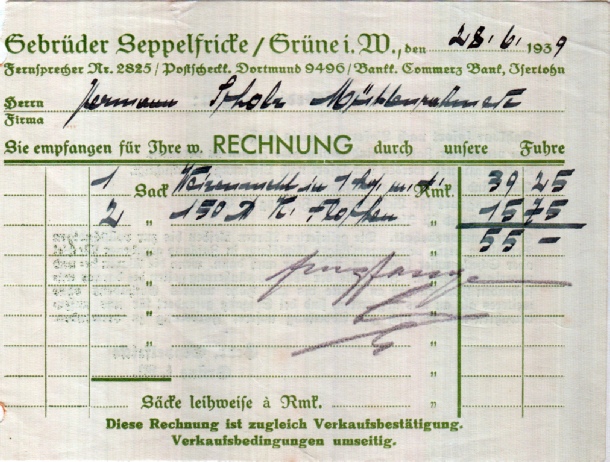 Gebrüder Seppelfricke / Grüne i. W., den 28. 6. 1939
Fernsprecher Nr. 2825 / Postscheckk. Dortmund 9496 / Bankk. Commerz Bank, Iserlohn
Herrn
Firma Hermann Scholz Mühlenrahmede
Sie empfangen für Ihre w. RECHNUNG durch unsere Fuhre
1 Sack Weizenmehl in 1 kg, Rmk. 39 25
2 " 150 K. Flocken " 15 75
" " 55 —
" "
" "
" "
" "
" "
Säcke leihweise à Rmk. "
Diese Rechnung ist zugleich Verkaufsbestätigung.
Verkaufsbedingungen umseitig.